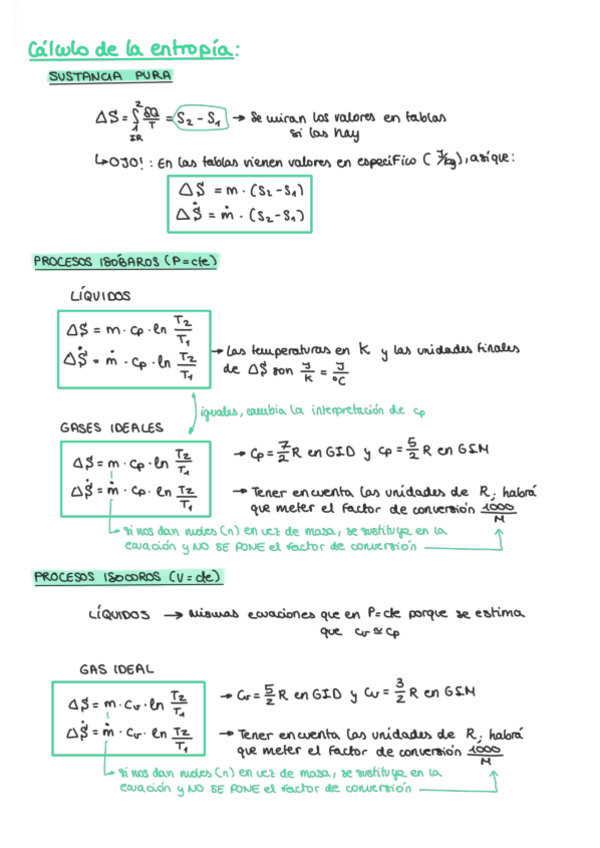 Cálculo de la entropía:
SUSTANCIA PURA
ΔS = ∫₁² δQ/T = S₂ - S₁ → Se miran los valores en tablas
IR
si las hay
↳ OJO! : En las tablas vienen valores en específico (J/kg), así que:
ΔS = m · (S₂ - S₁)
ΔṠ = ṁ · (S₂ - S₁)
PROCESOS ISÓBAROS (P = cte)
LÍQUIDOS
ΔS = m · cp · ln T₂/T₁
ΔṠ = ṁ · cp · ln T₂/T₁
→ Las temperaturas en K y las unidades finales
de ΔS son J/K = J/°C
iguales, cambia la interpretación de cp
GASES IDEALES
ΔS = m · cp · ln T₂/T₁
ΔṠ = ṁ · cp · ln T₂/T₁
→ Cp = 7/2 R en GID y cp = 5/2 R en GIM
→ Tener en cuenta las unidades de R, habrá
que meter el factor de conversión 1000/M
↳ si nos dan moles (n) en vez de masa, se sustituye en la
ecuación y NO SE PONE el factor de conversión
PROCESOS ISOCOROS (V = cte)
LÍQUIDOS → Mismas ecuaciones que en P=cte porque se estima
que cv ≃ cp
GAS IDEAL
ΔS = m · cv · ln T₂/T₁
ΔṠ = ṁ · cv · ln T₂/T₁
→ Cv = 5/2 R en GID y Cv = 3/2 R en GIM
→ Tener en cuenta las unidades de R, habrá
que meter el factor de conversión 1000/M
↳ si nos dan moles (n) en vez de masa, se sustituye en la
ecuación y NO SE PONE el factor de conversión